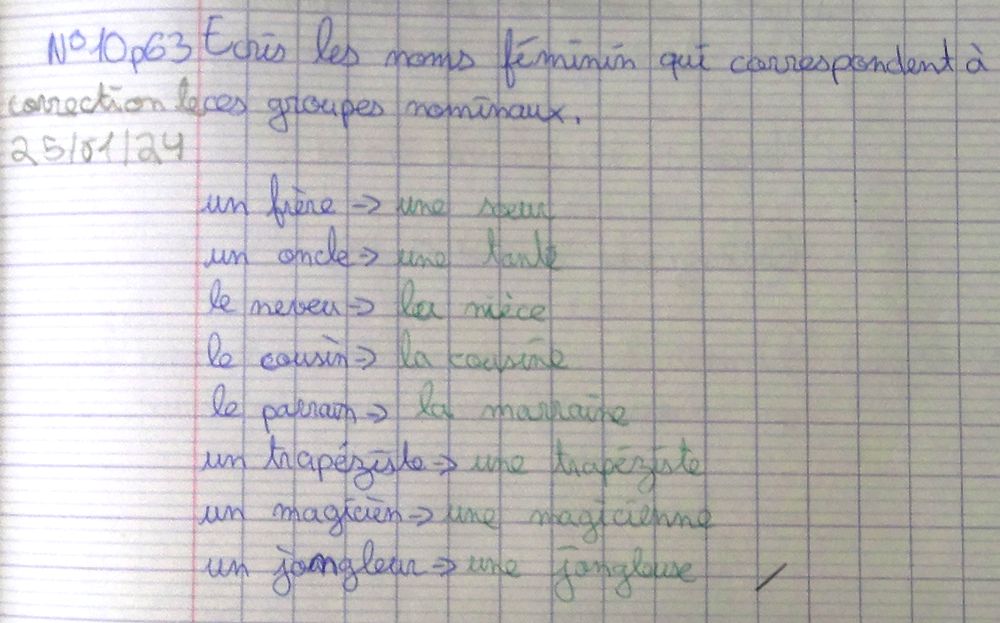 N° 10p63 Ecris les noms féminin qui correspondent à
correction le ces groupes nominaux.
25/01/24
un frère → une sœur
un oncle → une tante
le neveu → la nièce
le cousin → la cousine
le parrain → la marraine
un trapéziste → une trapéziste
un magicien → une magicienne
un jongleur → une jongleuse